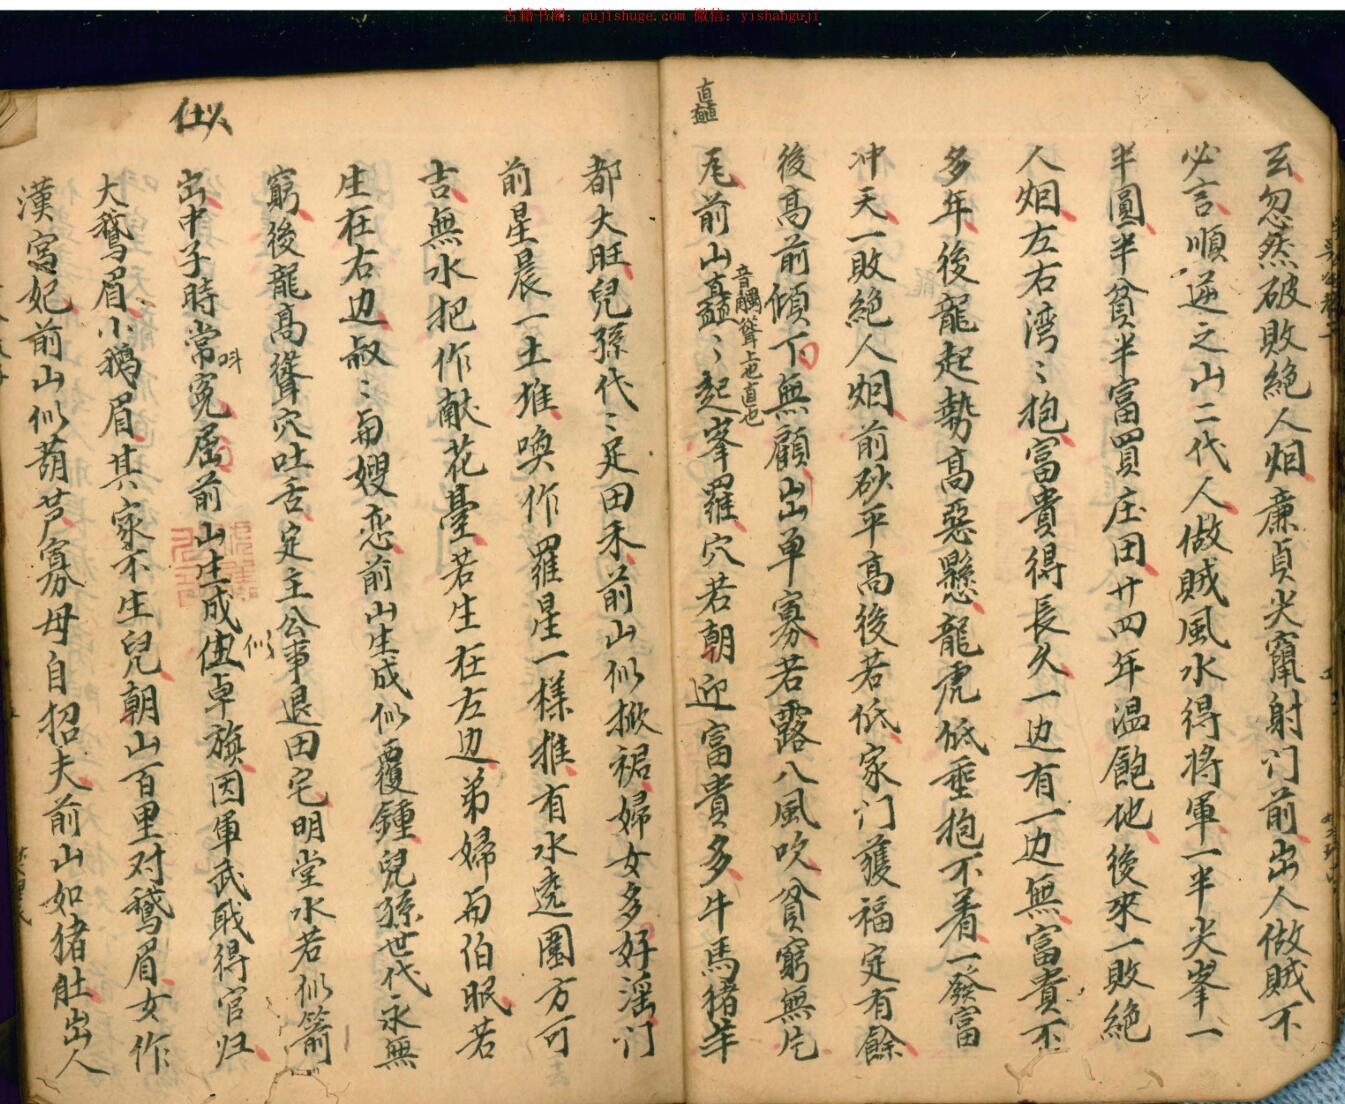 古籍书阁：gujishuge.com 微信：yishanguji
玄忽然破敗絕人烟廉貞尖窜射门前出人做賊不
必言順逆之山二代人做賊風水得将軍一半尖峯一
半圓半貧半富買庄田廿四年温飽地後來一敗絕
人烟左右湾〻抱富貴得長久一边有一边無富貴不
多年後龍起勢高惡懸龍虎低垂抱不着一發富
冲天一敗絕人烟前砂平高後若低家门獲福定有餘
後高前傾下無顧出单寡若露八風吹貧窮無片
瓦前山矗〻起峯羅穴若朝迎富貴多牛馬猪羊
音髑聳上也直也
直矗
都大旺兒孫代〻足田禾前山似掀裙婦女多好淫门
前星晨一土堆喚作羅星一樣推有水遶圍方可
吉無水把作献花臺若生在左边弟婦与伯眠若
生在右边叔〻与嫂恋前山生成似覆鍾兒孫世代永無
窮後龍高聳穴吐舌定主公事退田宅明堂水若似箭
出中子時常冤屈前山生成伍卓旗因軍武戝得官归
呌
似
大鵝眉小鵝眉其家不生兒朝山百里对鵝眉女作
漢宫妃前山似葫芦寡母自招夫前山如猪肚出人